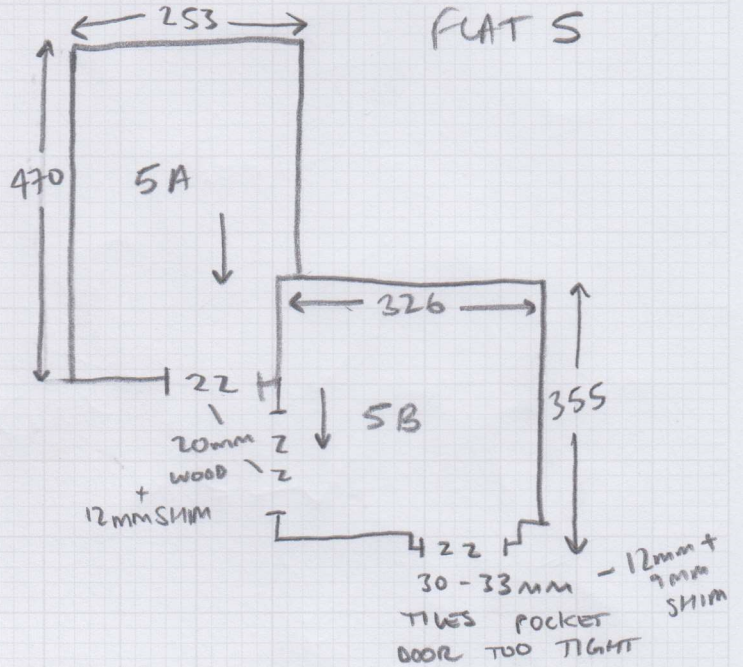 FLAT 5
253
470
5A
326
355
5B
22
20mm Z
WOOD Z
+
12mm SHIM
22
30-33mm - 12mm +
9mm
SHIM
TILES POCKET
DOOR TOO TIGHT